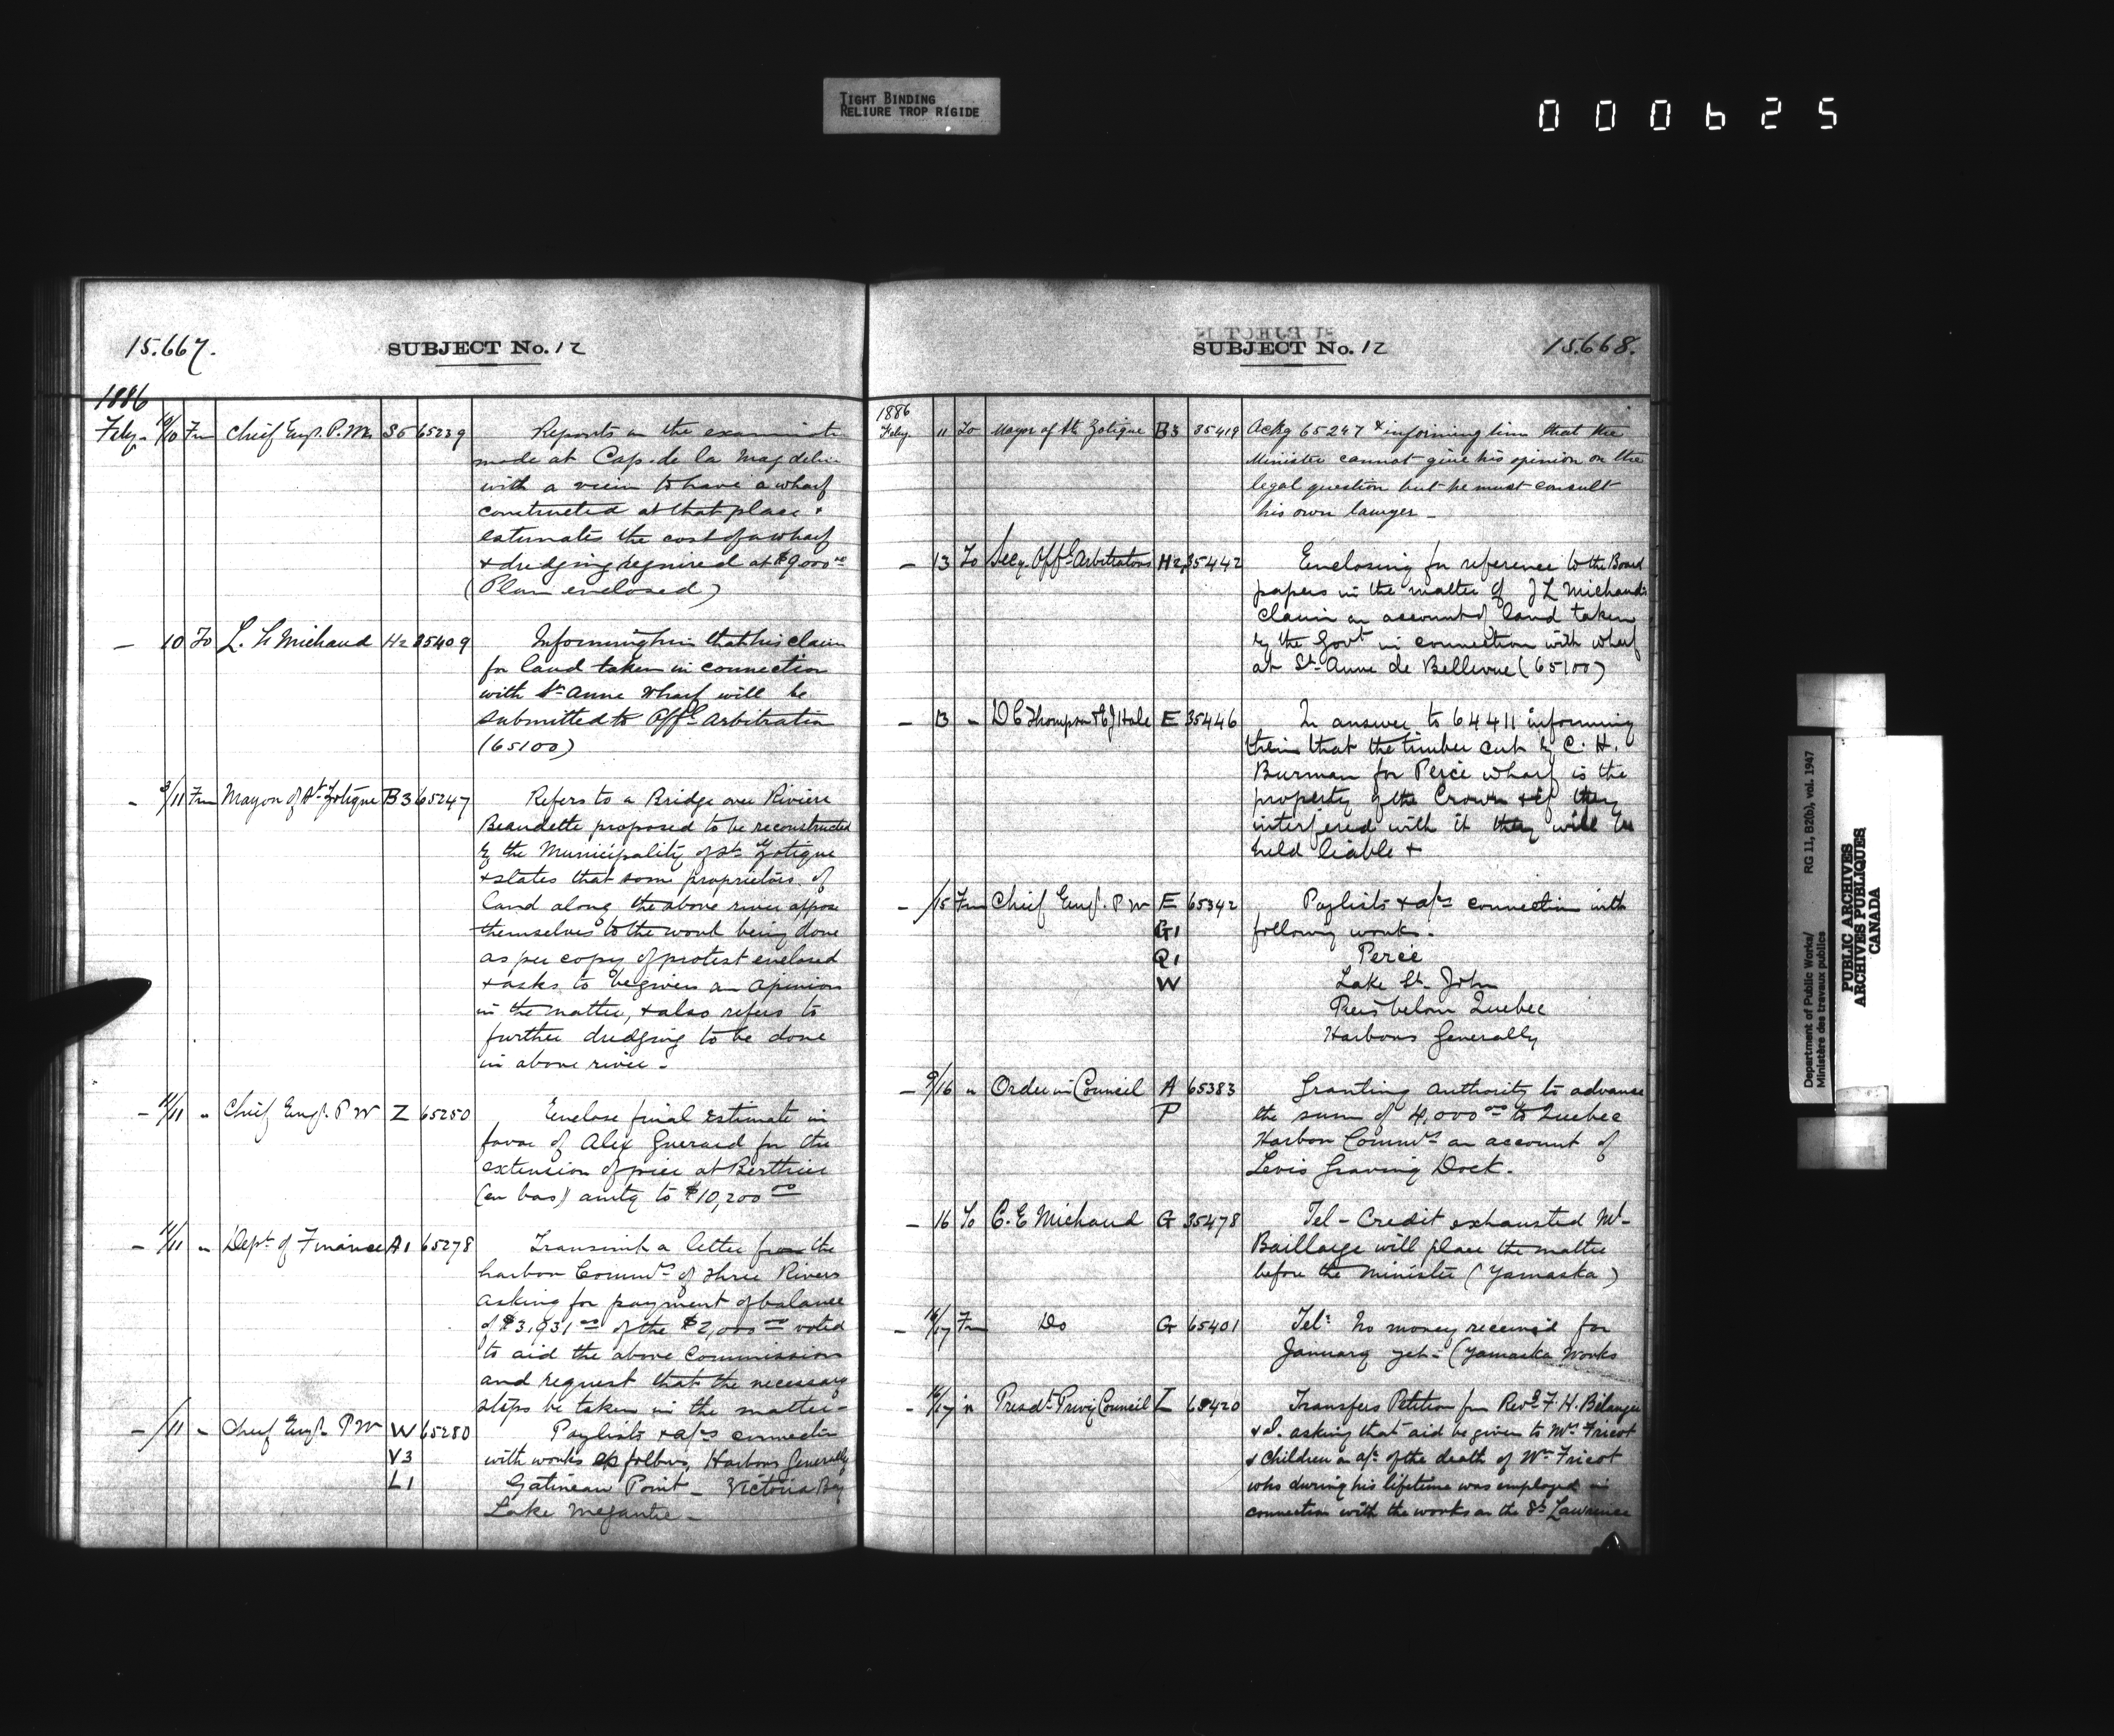 TIGHT BINDING
RELIURE TROP RIGIDE
000625
15.667.
SUBJECT No. 12
1886
Feby - 10/10 Fm Chief Engr. P. Wks S5 65239 Reports on the examinati
made at Cap. de la Magdelin
with a view to have a wharf
constructed at that place &
estimates the cost of a wharf
& dredging required at $9000.00
(Plan enclosed)
- 10 To L. H Michaud H2 35409 Informing him that his claim
for land taken in connection
with St. Anne Wharf will be
submitted to Offl. Arbitration
(65100)
- 9/11 Fm Mayor of St. Zotique B3 65247 Refers to a Bridge over Riviere
Beaudette proposed to be reconstructed
by the Municipality of St. Zotique
& states that some proprietors of
land along the above river oppose
themselves to the work being done
as per copy of protest enclosed
& asks to be given an opinion
in the matter, & also refers to
further dredging to be done
in above river.
- 11/11 " Chief Engr. P W Z 65250 Enclose final estimate in
favor of Alex Guerard for the
extension of pier at Berthier
(en bas) amtg to $10,200.00
- 11/11 " Dept. of Finance A1 65278 Transmit a letter from the
harbor Commrs. of Three Rivers
asking for payment of balance
of of the $2,000.00 voted
to aid the above Commission
and request that the necessary
steps be taken in the matter -
- /11 " Chief Engr. P W W 65280 Paylists & a/cs connection
V3 with works as follows, Harbors Generally
L1 Gatineau Point - Victoria Bay
Lake Megantic -
SUBJECT No. 12
15.668.
1886
Feby. 11 To Mayor of St. Zotique B3 35419 Ackg 65247 & informing him that the
Minister cannot give his opinion on the
legal question but he must consult
his own lawyer -
- 13 To Secy. Offl. Arbitrators H2 35442 Enclosing for reference to the Board
papers in the matter of J L Michaud's
claim on account of land taken
by the Govt in connection with wharf
at St. Anne de Bellevue (65100)
- 13 " D C Thompson & C J Hale E 35446 In answer to 64411 informing
them that the timber cut by C. H.
Burman for Percé wharf is the
property of the Crown & if they
interfered with it they will be
held liable &
- /15 Fm Chief Engr. P W E 65342 Paylists & a/cs connection with
G1 following works.
Q1 Percé
W Lake St. John
Piers below Quebec
Harbors Generally
- 9/16 " Order in Council A 65383 Granting authority to advance
P the sum of 4,000.00 to Quebec
Harbor Commrs on account of
Levis Graving Dock.
- 16 To C. E Michaud G 35478 Tel - Credit exhausted Mr.
Baillarge will place the matter
before the Minister (Yamaska)
- 16/17 Fm Do G 65401 Tel: No money received for
January yet. (Yamaska Works
- 16/17 " Presdt. Privy Council I 65420 Transfers Petition fm Revd. F. H. Bélanger
& I. asking that aid be given to Mrs. Fricot
& children on a/c of the death of Wm Fricot
who during his lifetime was employed in
connection with the works on the St. Lawrence
Department of Public Works/ RG 11, B2(b), vol. 1947
Ministère des travaux publics
PUBLIC ARCHIVES
ARCHIVES PUBLIQUES
CANADA